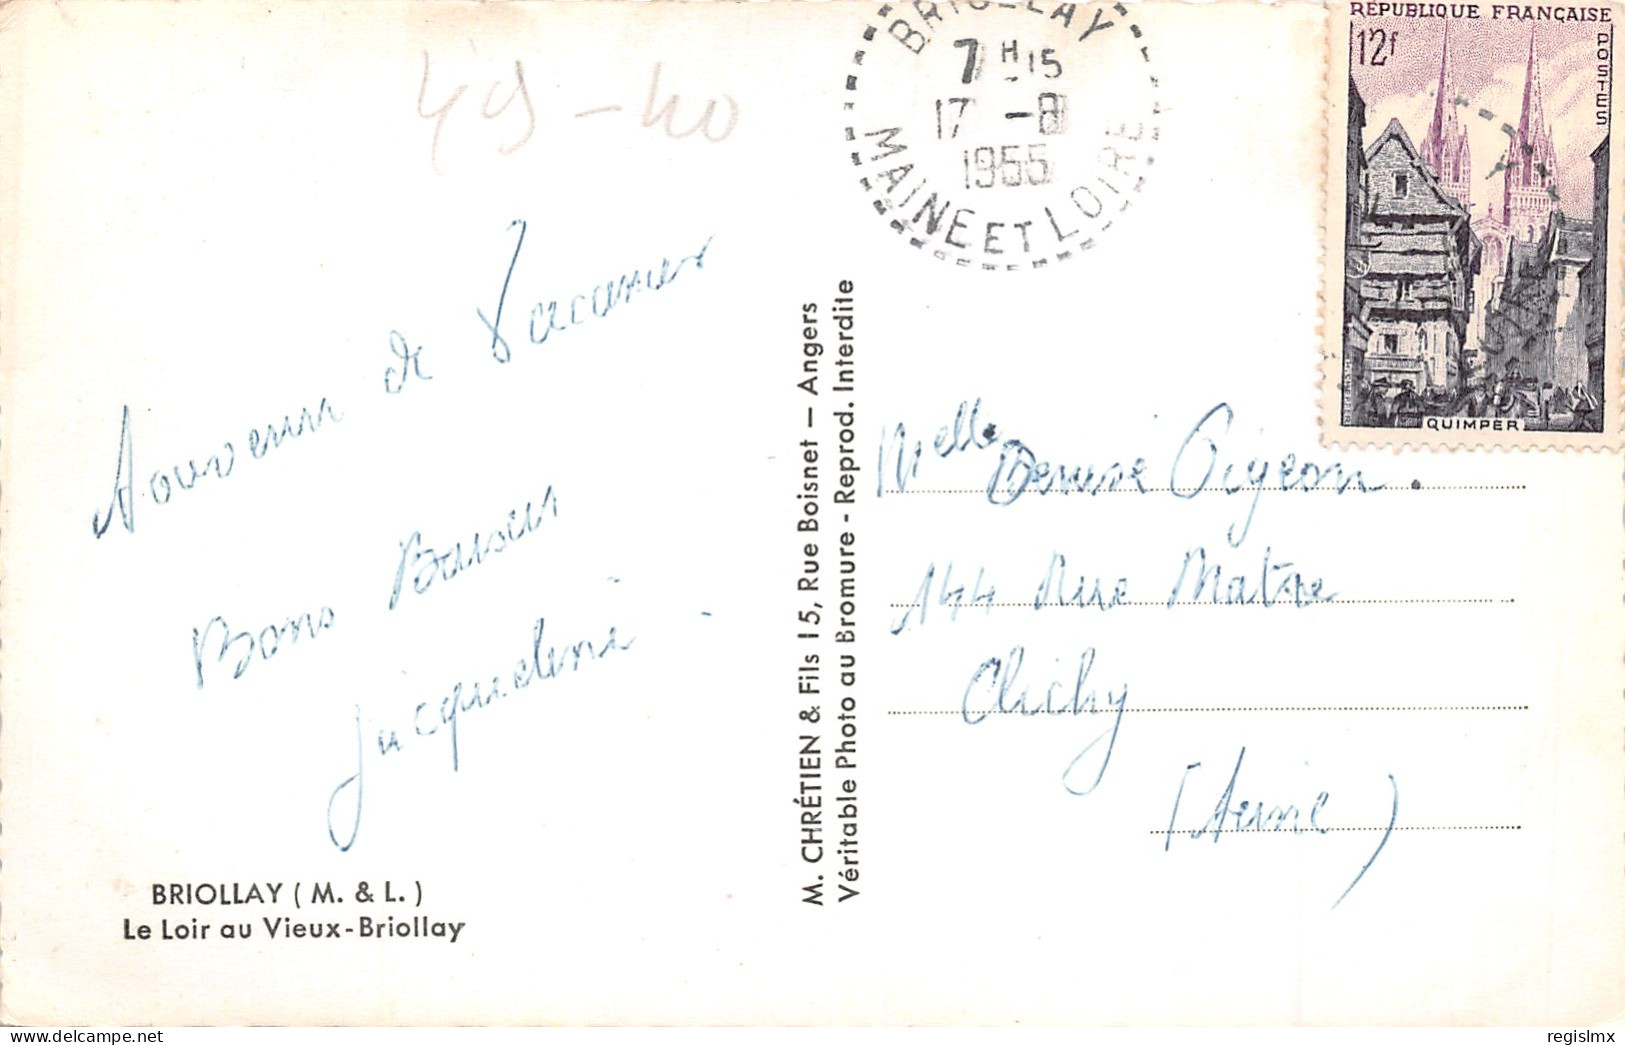 49-40
BRIOLLAY
7 H 15
17 -8
1955
MAINE ET LOIRE
RÉPUBLIQUE FRANÇAISE
POSTES
12f
QUIMPER
Souvenir de Vacances
Bons Baisers
Jacqueline
BRIOLLAY ( M. & L. )
Le Loir au Vieux-Briollay
M. CHRÉTIEN & Fils 15, Rue Boisnet — Angers
Véritable Photo au Bromure - Reprod. Interdite
Melle Denise Pigeon.
144 Rue Matre
Clichy
(Seine)
regislmx